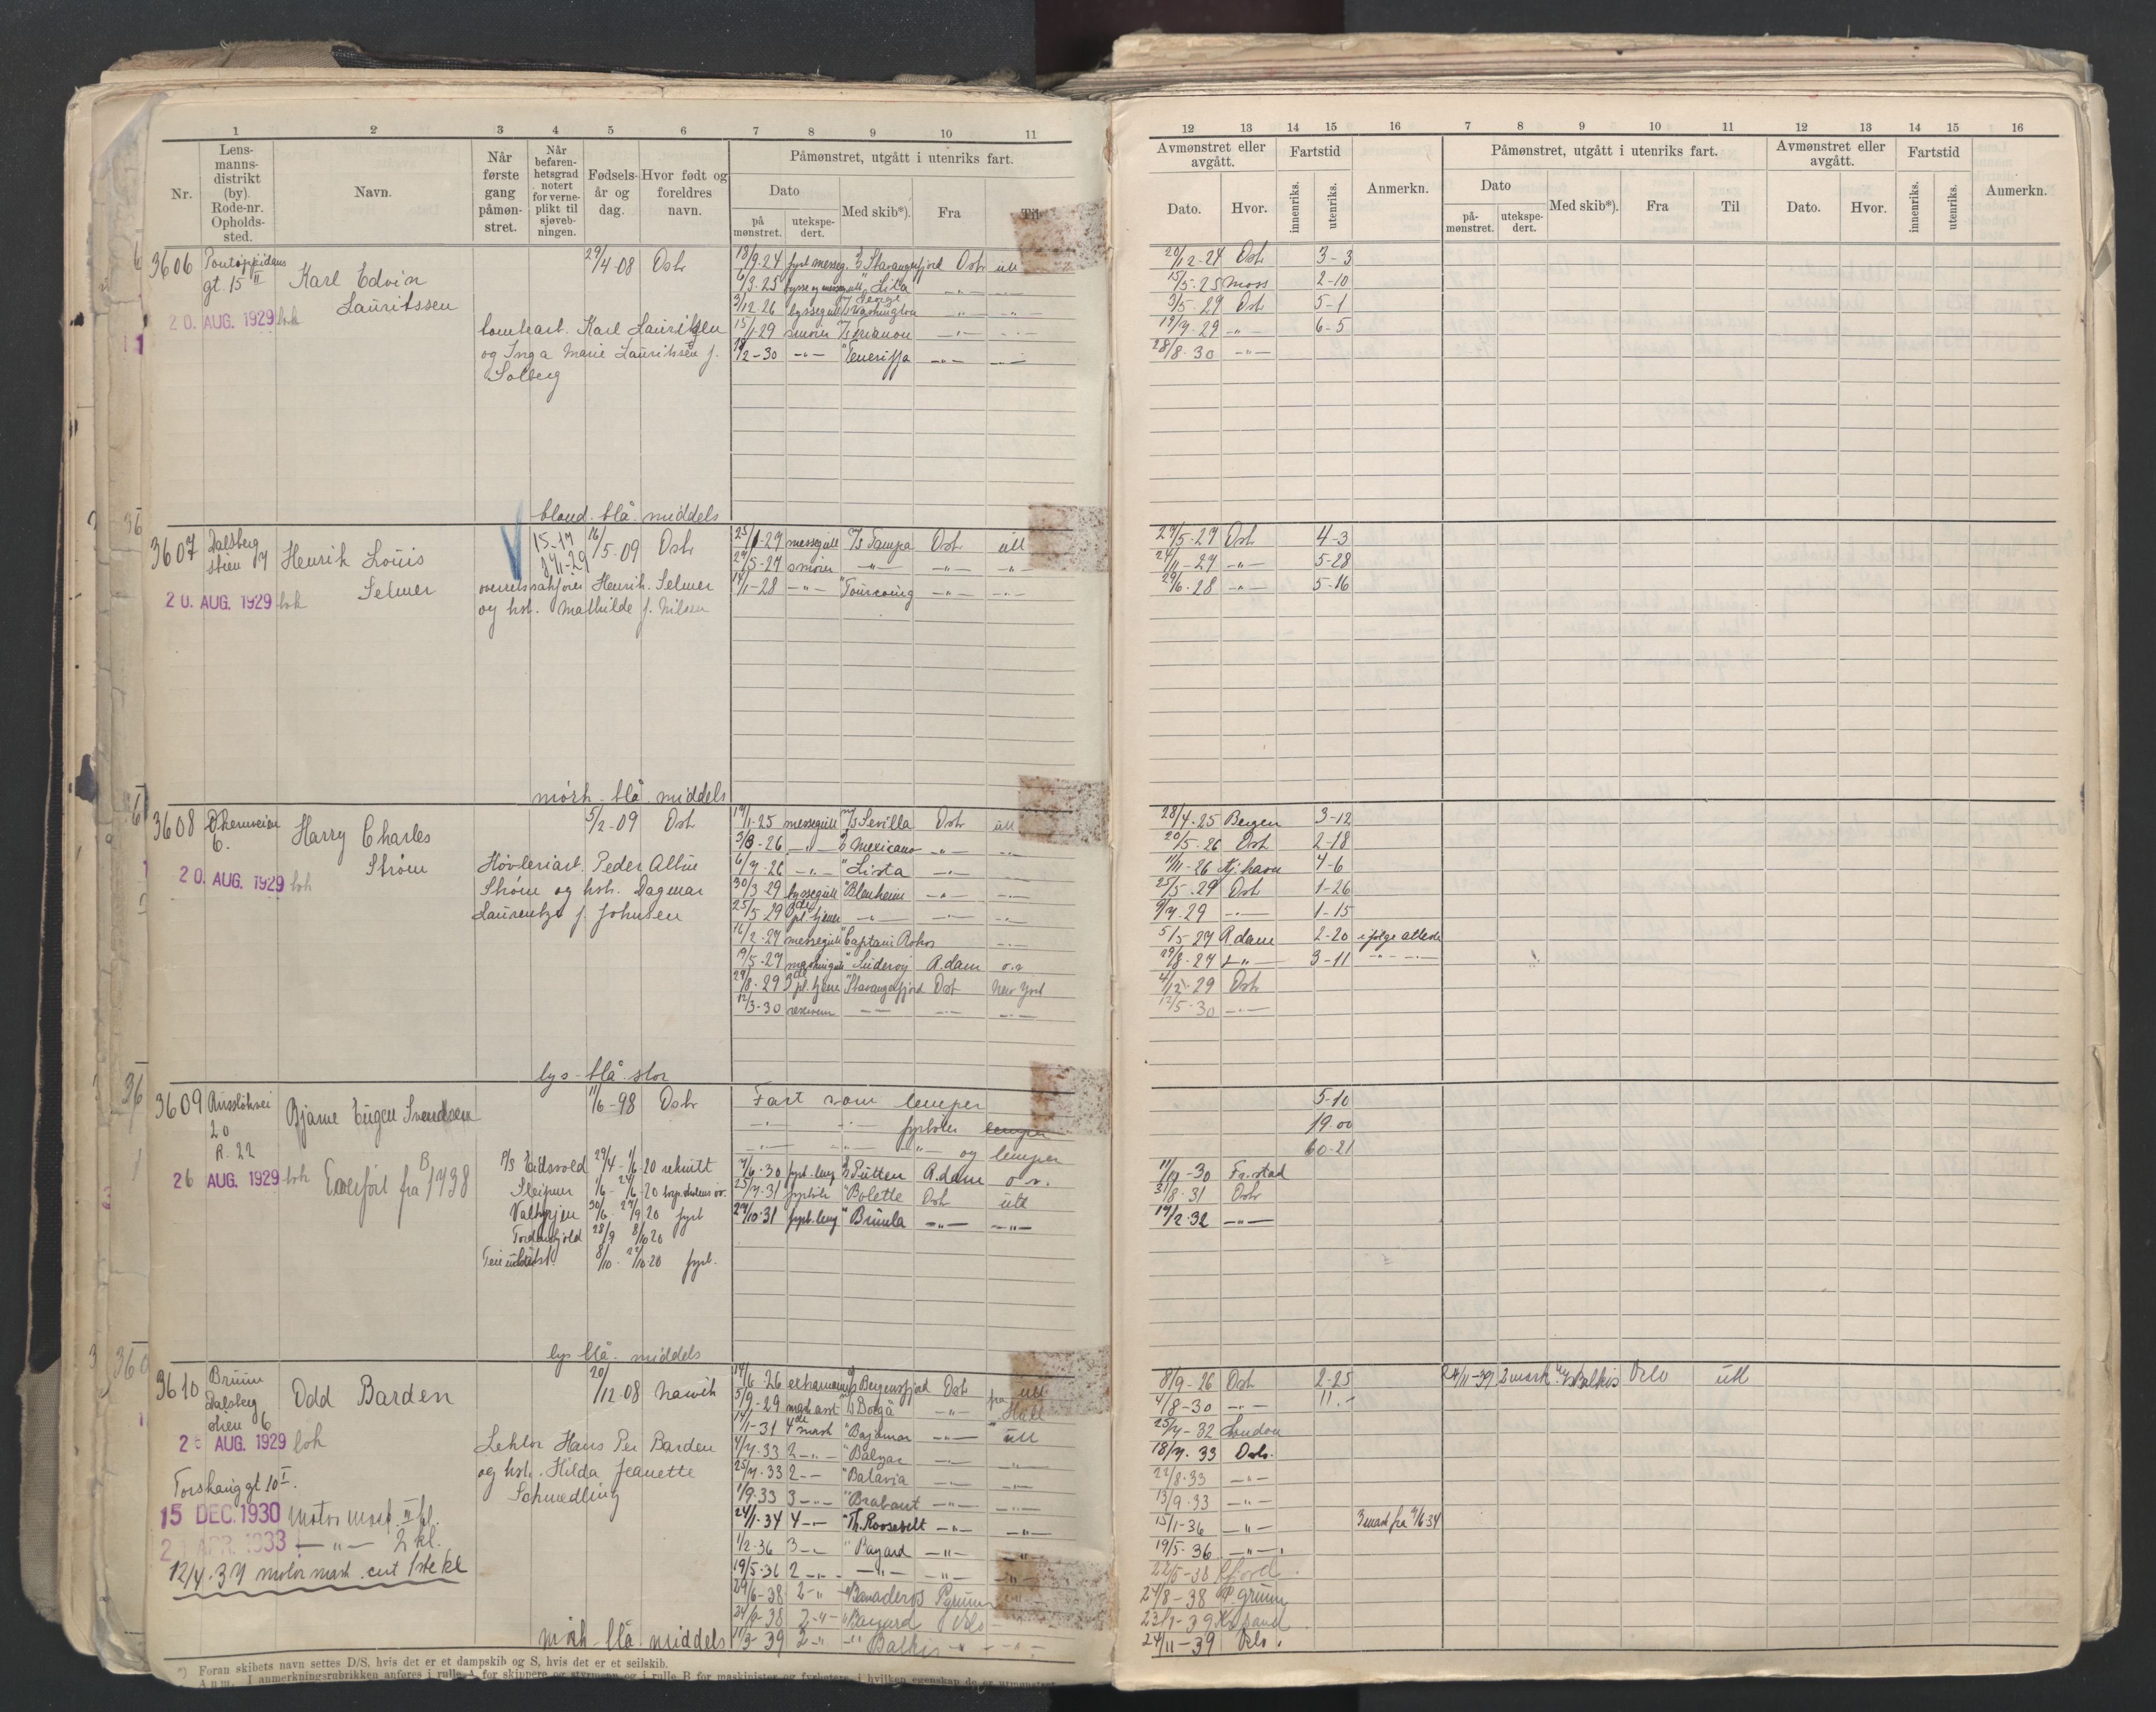 1 2 3 4 5 6 7 8 9 10 11
Nr.
Lens-
manns-
distrikt
(by).
Rode-nr.
Opholds-
sted.
Navn.
Når
første
gang
påmøn-
stret.
Når
befaren-
hetsgrad
notert
for verne-
plikt til
sjøveb-
ningen.
Fødsels-
år og
dag.
Hvor født og
foreldres
navn.
Påmønstret, utgått i utenriks fart.
Dato
på
mønstret.
utekspe-
dert.
Med skib*).
Fra
Til
3606 Pontoppidans
gt. 15 II
Karl Edvin
Lauritssen
20. AUG. 1929 lok
29/4-08 Oslo
tomtearb. Karl Lauritzen
og Inga Marie Lauritssen f.
Solberg
18/9-24 fyrb messeg. Stavangerfjord Oslo utl
6/3-25 Lista -"- -"-
3/12-26 byssegutt George Washington " "
15/1-29 smører M/S Trianon -"- -"-
-30 -"- " Teneriffa -"- -"-
blond. blå. middels
3607 Dalsberg
stien 17
Henrik Louis
Selmer
20. AUG. 1929 lok
15-17
16/5-09 Oslo
overretssakfører Henrik Selmer
og hst. Mathilde f. Nilsen
25/1-27 messegutt M/S Tampa Oslo utl
27/5-27 smører -"- -"- -"-
14/1-28 -"- " Tourcoing -"- -"-
mørk - blå. middels
3608
6.
Harry Charles
Strøm
20. AUG. 1929 lok
5/2-09 Oslo
Høvleriarb. Peder Alfin
Strøm og hst. Dagmar
Laurentze f. Johnsen
14/1-25 messegutt M/S Sevilla Oslo utl
3/3-26 -"- Mexicano -"- -"-
6/7-26 -"- " Lista -"- -"-
30/3 29 byssegutt " Blenheim -"- -"-
25/5 29 pl. tjener -"- -"- -"-
16/2-27 messegutt " Captain Rokos -"-
19/5-27 " Suderøy A.dam o.r.
29/8-29 3 pl. tjener " Stavangerfjord Oslo New York
12/3-30 -"- -"- -"-
lys - blå - stor
3609
20
R. 22
Bjarne Eugen Svendsen
26 AUG. 1929 lok
Overført fra B 1738
11/6-98 Oslo
P/S Eidsvold 29/4-1/6 20 rekrutt
Sleipner 1/6-24/6 20
Valkyrjen 30/6-27/9 20 fyrb
Tordenskjold 28/9 8/10 20
8/10-27/10 20 fyrb.
Fart som lemper
-"- -"- fyrbøter lemper
-"- -"- -"- og lemper
7/6-30 fyrb. lemp Putten A.dam o.r.
25/7-31 fyrbøt " Bolette Oslo utl
27/10-31 fyrb. lemp " Brumla -"- -"-
lys blå - middels
3610 Bruun
Dalsberg
stien 6
Odd Barden
26 AUG. 1929 lok
Torshauggt 10 I.
15 DEC. 1930 Motor mask. III kl.
21 APR. 1933 -"- 2 kl.
12/4-37 motor mask. cert 1ste kl
20/12-08 Narvik
Lektor Hans Per Barden
og hst. Hilda Jeanette
Schmedling
14/6-26 Bergensfjord Oslo utl
5/9-29 mask asst " Borgå -"- fra Hull
14/1-31 4de mask " Bajamar -"- " utl
4/7-33 2 -"- " Balzac -"- "
25/7-33 2 -- " Batavia -"- -"-
1/9-33 3 -"- " Brabant -"- -"-
24/1-34 4 -"- " Th. Roosevelt -"- -"-
1/2-36 3 -"- " Bayard -"- -"-
19/5-36 2 -"- -"- -"- -"-
29/6-38 2 -"- " Banaderos P.grunn
24/8-38 2 -"- " Bayard Oslo
11/3-39 2 -"- " Balkis -"- -"-
mørk - blå middels
*) Foran skibets navn settes D/S, hvis det er et dampskib og S, hvis det er et seilskib.
Anm. I anmerkningsrubrikken anføres i rulle A for skippere og styrmenn og i rulle B for maskinister og fyrbøtere, i hvilken egenskap de er utmønstret
12 13 14 15 16 7 8 9 10 11 12 13 14 15 16
Avmønstret eller
avgått.
Fartstid
Dato.
Hvor.
innenriks.
utenriks.
Anmerkn.
Påmønstret, utgått i utenriks fart.
Dato
på-
mønstret.
utekspe-
dert.
Med skib*).
Fra
Til
Avmønstret eller
avgått.
Fartstid
Dato.
Hvor.
innenriks.
utenriks.
Anmerkn.
20/12-24 Oslo 3-3
15/5-25 Moss 2-10
3/5-29 Oslo 5-1
19/7-29 -"- 6-5
28/8-30 -"-
27/5-27 Oslo 4-3
24/11-27 -"- 5-28
29/6-28 -"- 5-16
28/4-25 Bergen 3-12
20/5-26 Oslo 2-18
11/11-26 Kj.havn 4-6
25/5-29 Oslo 1-26
9/7-29 -"- 1-15
5/5-27 A.dam 2-20 ifølge attest
29/8-27 -"- 3-11 -"- -"-
4/12-29 Oslo
12/5-30 -"-
5-10
19.00
60-21
11/12-30 Fr.stad
31/8-31 Oslo
17/2-32 -"-
8/9-26 Oslo 2-25 24/11-39 2 mask. M/S Balkis Oslo utl
4/8-30 -"- 11.-
25/7-32 London
18/7-33 Oslo.
22/8-33 -"-
13/9-33 -"-
15/1-36 -"- 3 mask fra 4/6-34
19/5-36 -"-
22/5-38
24/8-38 P.grunn
23/1-39 Kr.sand
24/11-39 Oslo.